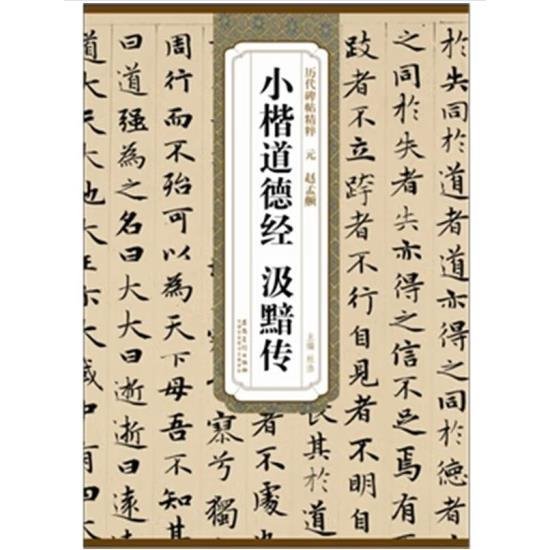 於失同於道者道亦得之同於德者
之同於失者失亦得之信不足焉有
跂者不立跨者不行自見者不明自
長其於道
者不處也
寥兮獨
周行而不殆可以為天下母吾不知其
曰道強為之名曰大大曰逝逝曰遠
道大天大地大王亦大域中有四
历代碑帖精粹 元 赵孟頫
小楷道德经 汲黯传
主编 杜浩